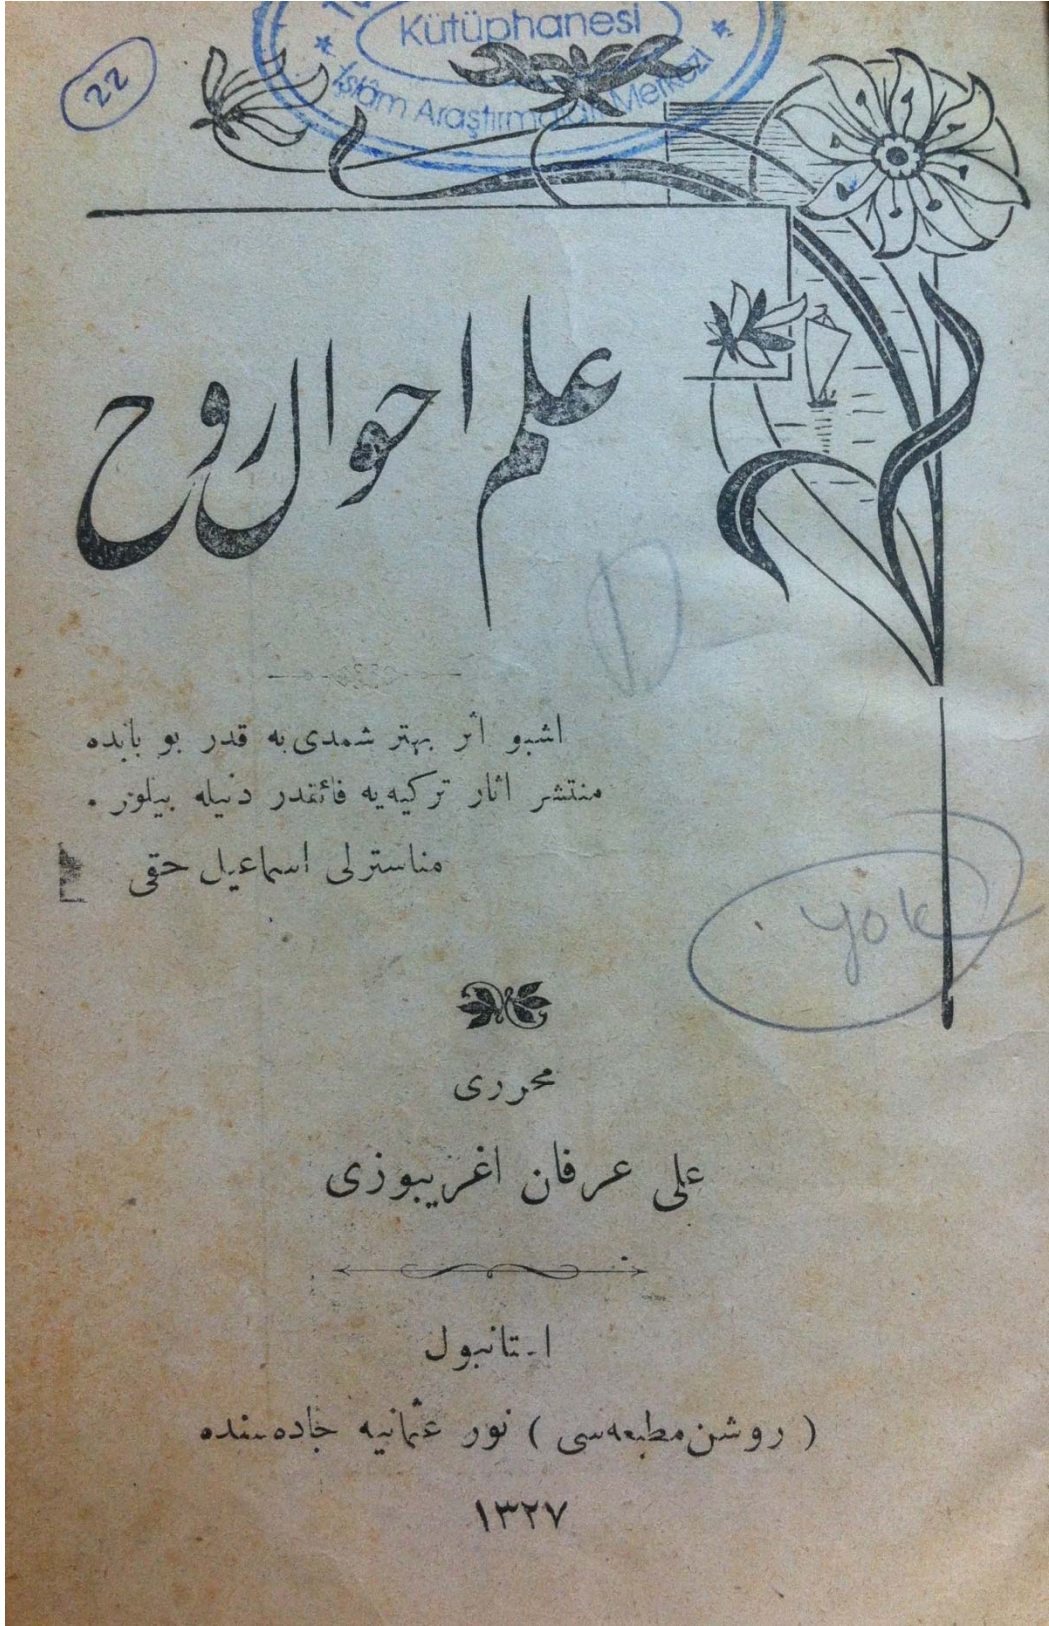 22
Kütüphanesi
İslâm Araştırmaları Merkezi
علم احوال روح
اشبو اثر بهتر شمدی‌یه قدر بو بابده
منتشر اثار ترکیه‌یه فائقدر دنیله بیلور .
مناسترلی اسماعیل حقی
yok
محرری
علی عرفان اغریبوزی
استانبول
( روشن مطبعه‌سی ) نور عثمانیه جاده‌سنده
۱۳۲۷